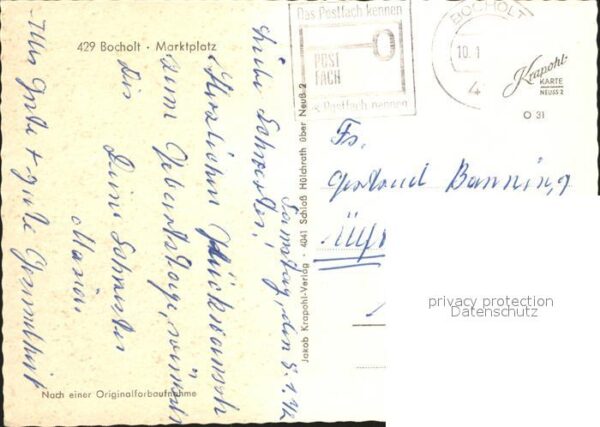 429 Bocholt · Marktplatz
Samstag, den 8.1.72
Liebe Schwester!
Herzlichen Glückwunsch
zum Geburtstage, wünscht
Dir
Deine Schwester
Maria.
Alles Gute + gute Gesundheit
Nach einer Originalfarbaufnahme
Jakob Krapohl-Verlag · 4041 Schloß Hülchrath über Neuß 2
Das Postfach kennen
POST
FACH
Das Postfach nennen
BOCHOLT
10.1
4
Krapohl
KARTE
NEUSS 2
O 31
Fr.
Gertrud Banning
privacy protection
Datenschutz